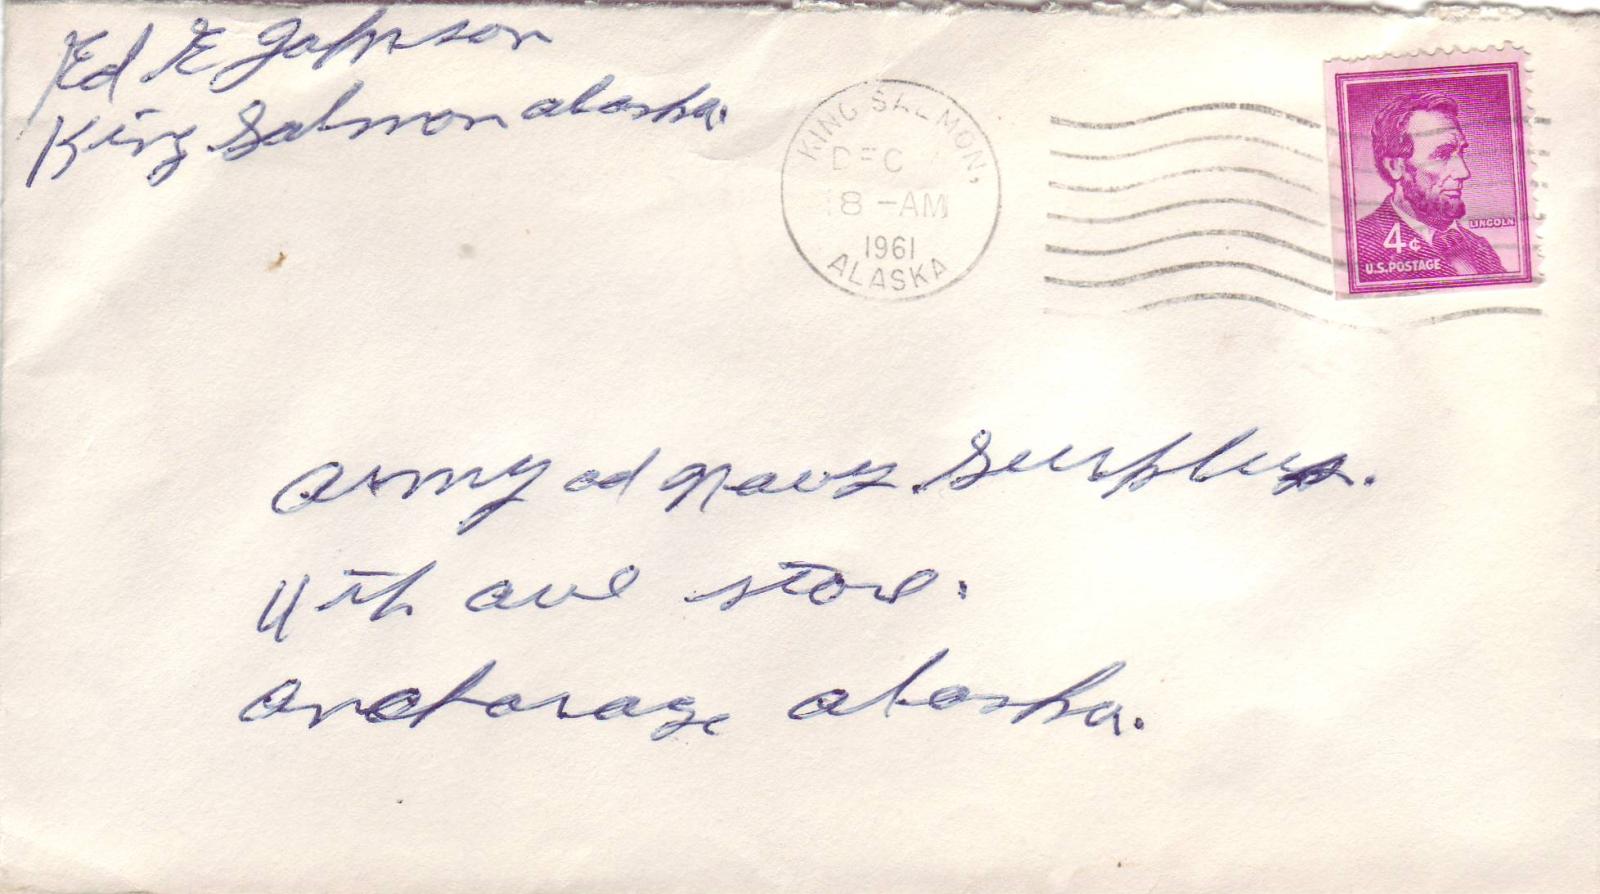 Ed E Johnson
King Salmon alaska.
KING SALMON,
DEC
8 - AM
1961
ALASKA
LINCOLN
4¢
U.S. POSTAGE
army ad navy Surplus.
4th ave store.
anchorage alaska.